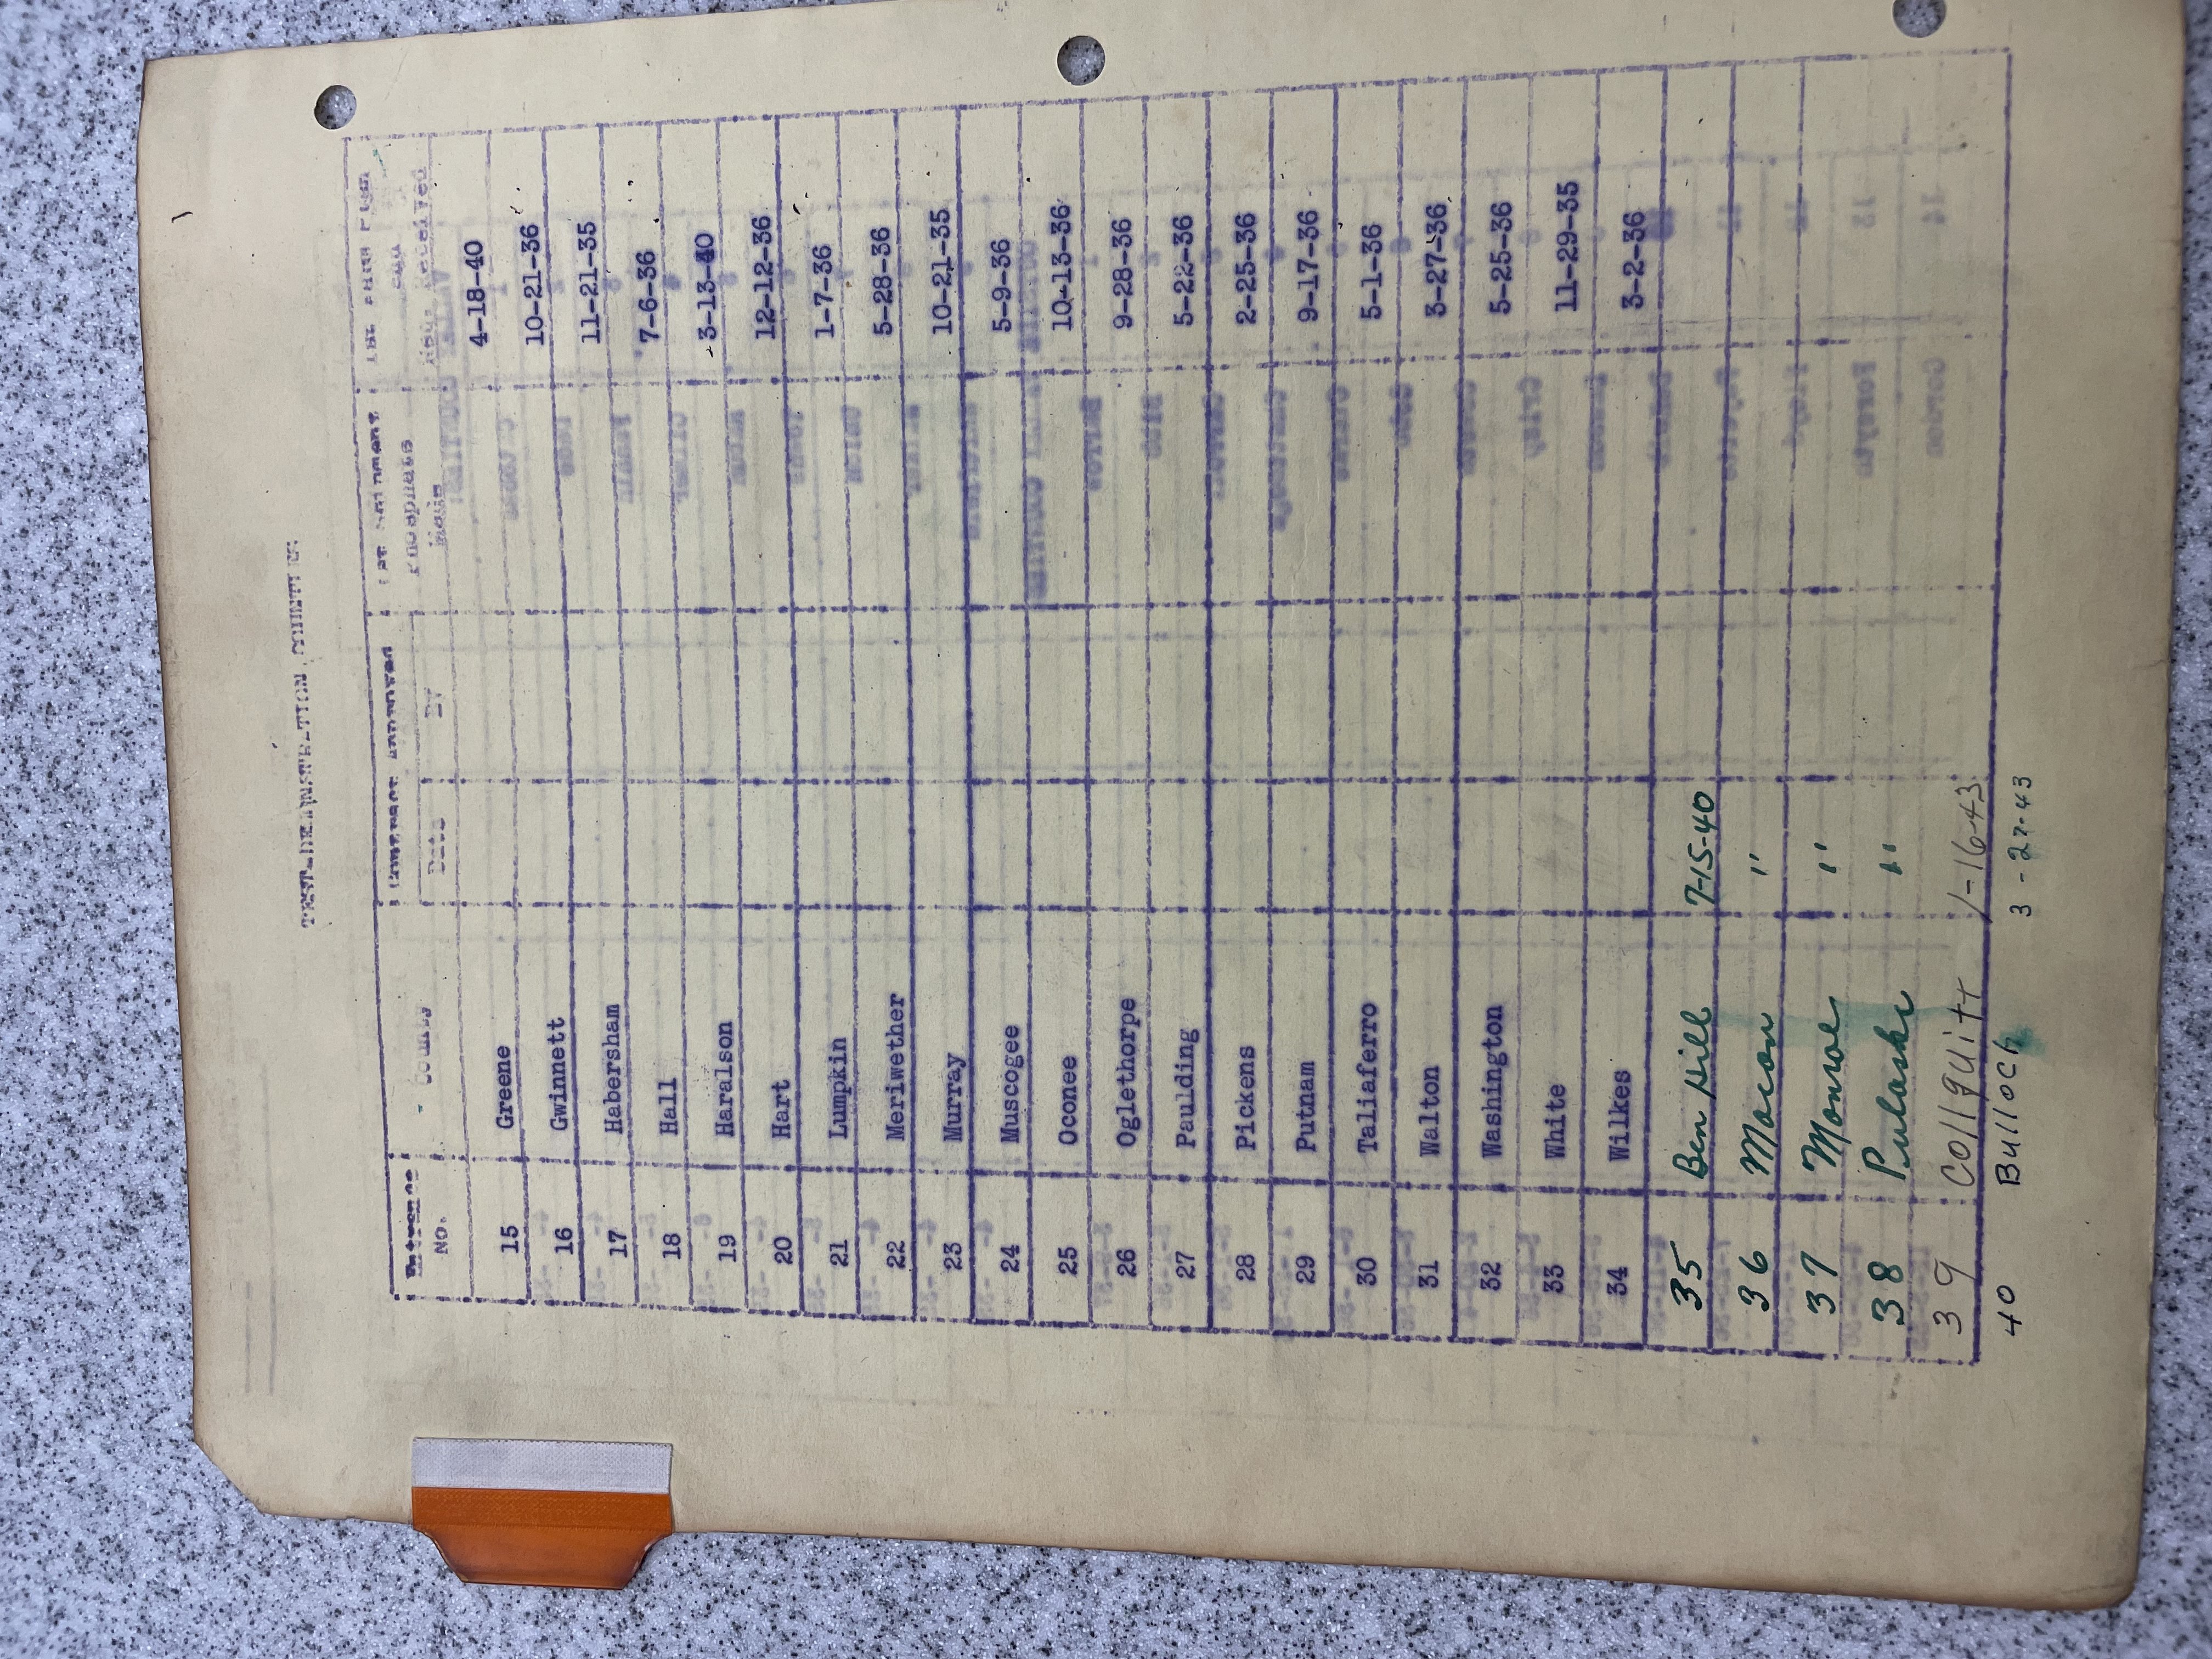 TEST-DEMONSTRATION COUNTIES
Entrance No. County Contract Approved Date By 1st Shipment Phosphate Made 1st Farm Plan and Req. Received
15 Greene 4-18-40
16 Gwinnett 10-21-36
17 Habersham 11-21-35
18 Hall 7-6-36
19 Haralson 3-13-40
20 Hart 12-12-36
21 Lumpkin 1-7-36
22 Meriwether 5-28-36
23 Murray 10-21-35
24 Muscogee 5-9-36
25 Oconee 10-13-36
26 Oglethorpe 9-28-36
27 Paulding 5-22-36
28 Pickens 2-25-36
29 Putnam 9-17-36
30 Taliaferro 5-1-36
31 Walton 3-27-36
32 Washington 5-25-36
33 White 11-29-35
34 Wilkes 3-2-36
35 Ben Hill 7-15-40
36 Macon "
37 Monroe "
38 Pulaski "
39 Collquitt 1-16-43
40 Bulloch 3-27-43